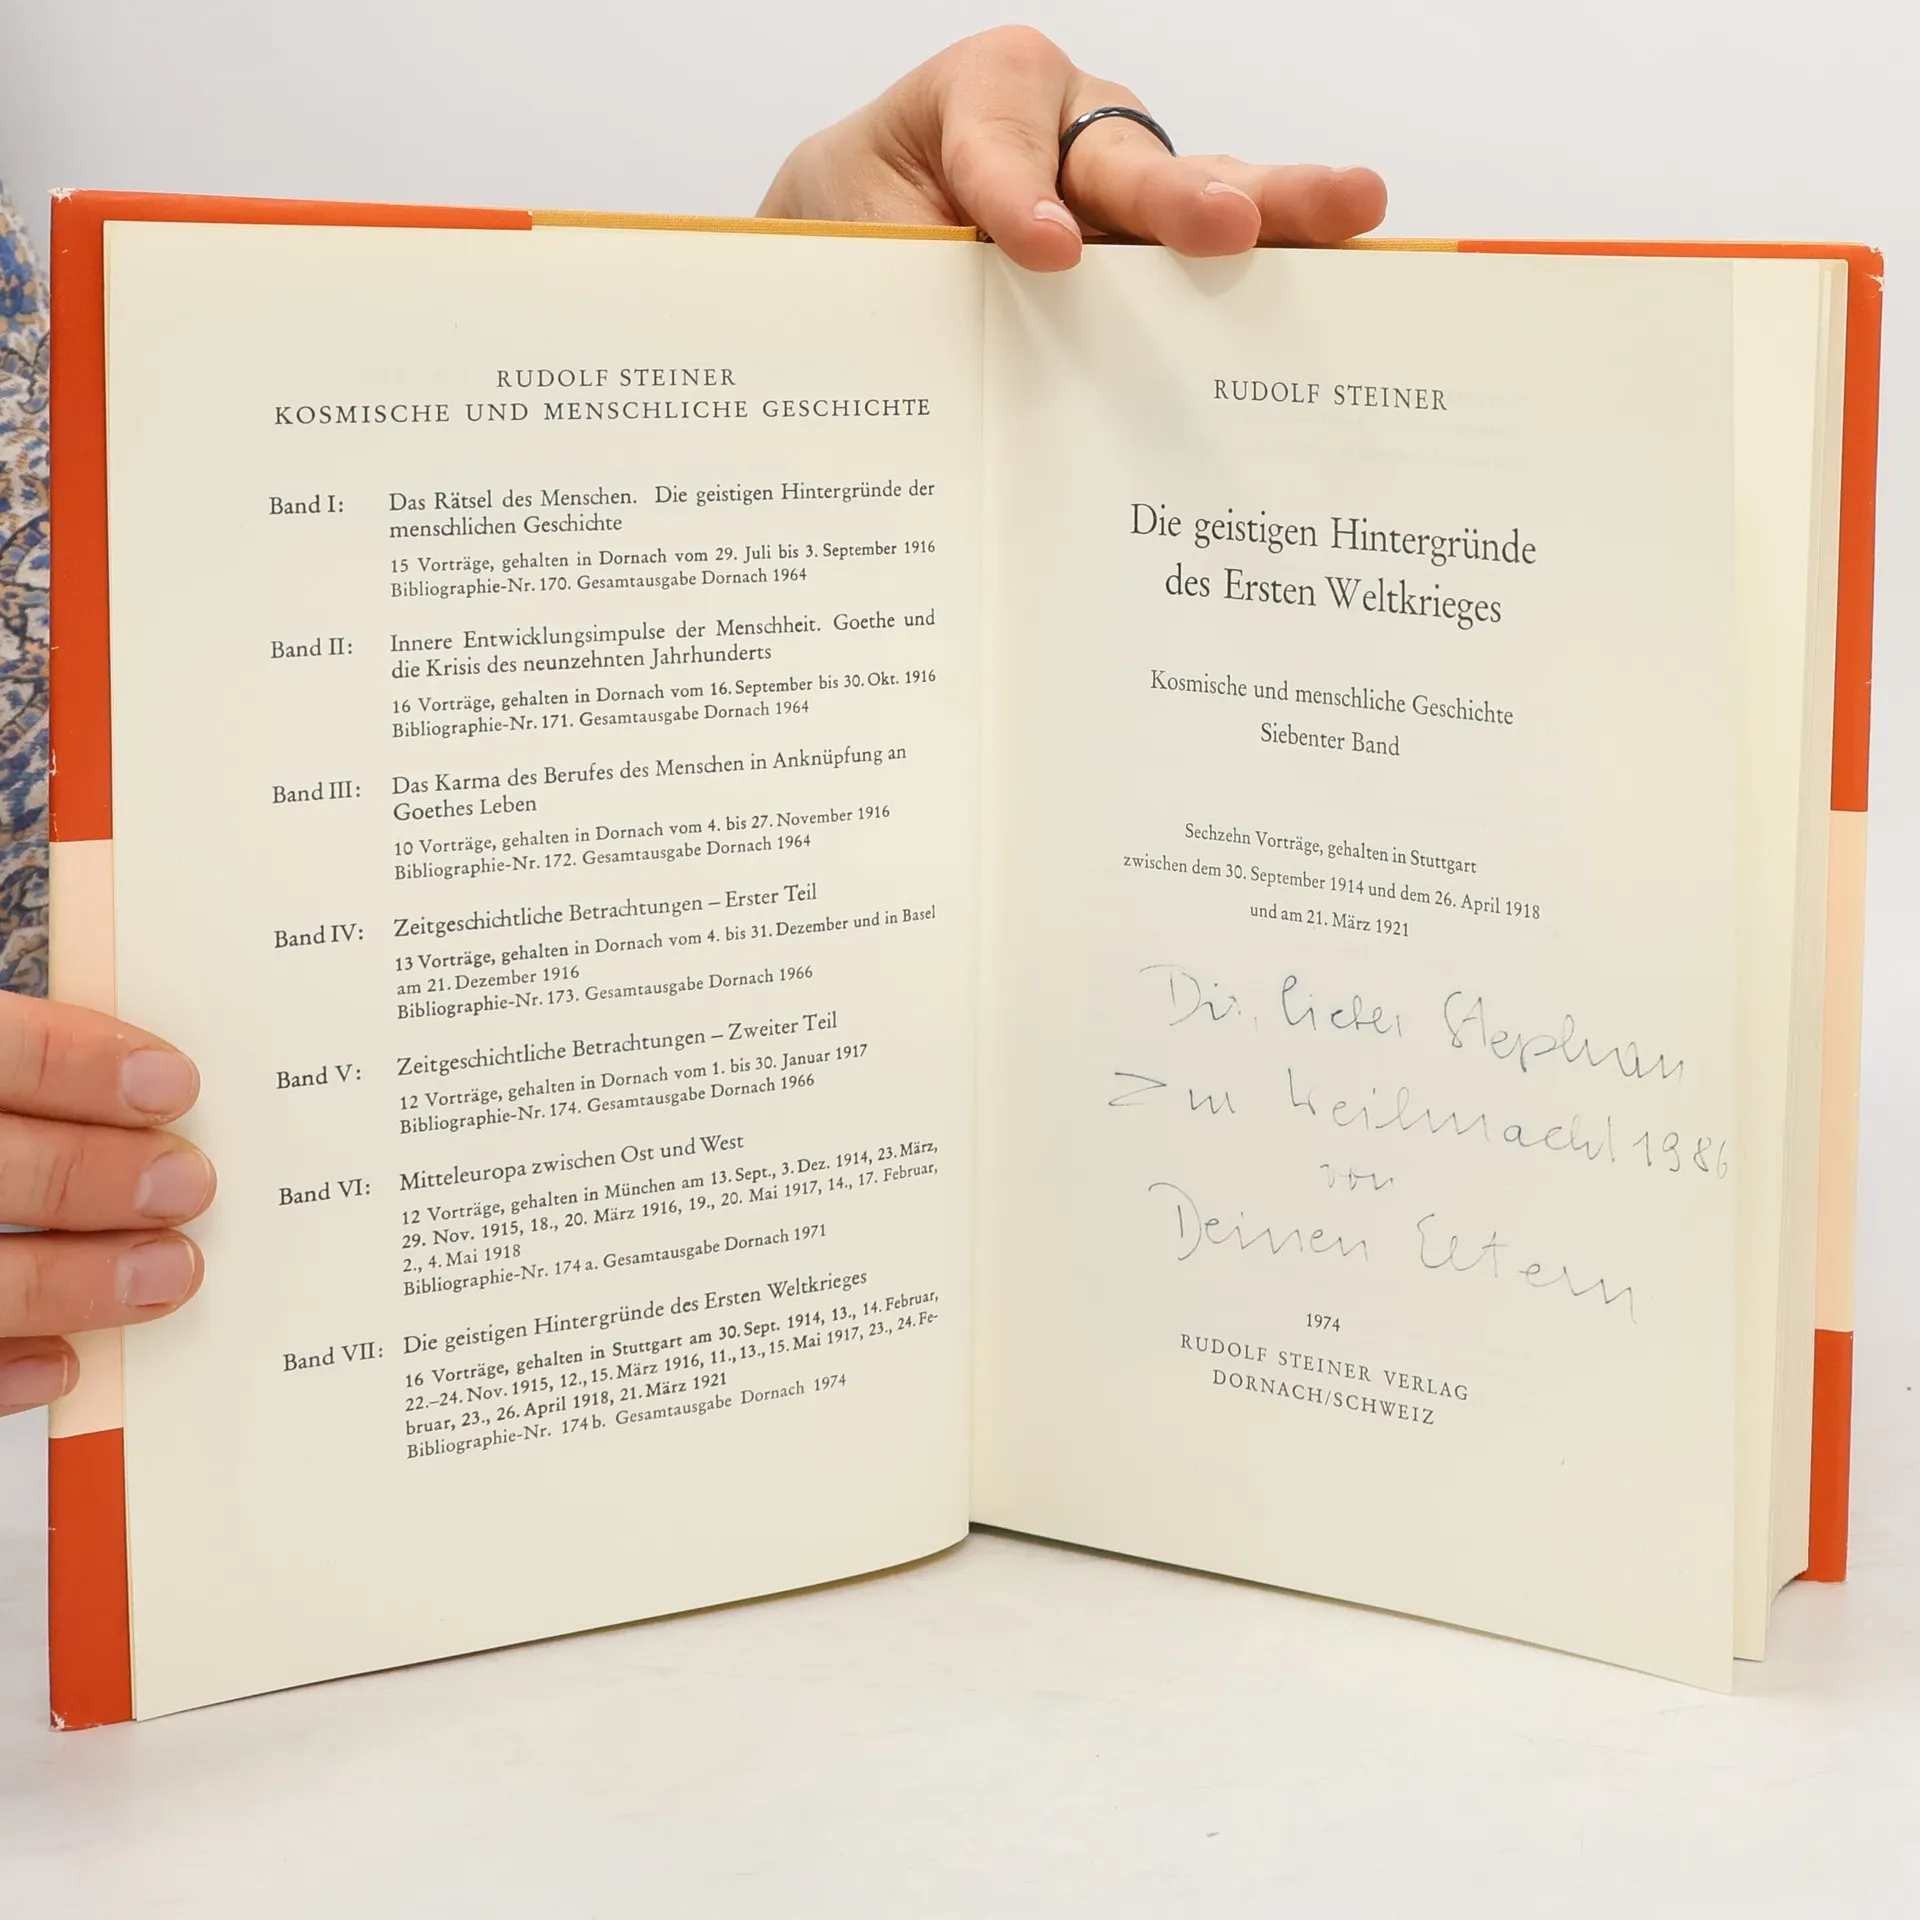 RUDOLF STEINER
KOSMISCHE UND MENSCHLICHE GESCHICHTE
Band I: Das Rätsel des Menschen. Die geistigen Hintergründe der
menschlichen Geschichte
15 Vorträge, gehalten in Dornach vom 29. Juli bis 3. September 1916
Bibliographie-Nr. 170. Gesamtausgabe Dornach 1964
Band II: Innere Entwicklungsimpulse der Menschheit. Goethe und
die Krisis des neunzehnten Jahrhunderts
16 Vorträge, gehalten in Dornach vom 16. September bis 30. Okt. 1916
Bibliographie-Nr. 171. Gesamtausgabe Dornach 1964
Band III: Das Karma des Berufes des Menschen in Anknüpfung an
Goethes Leben
10 Vorträge, gehalten in Dornach vom 4. bis 27. November 1916
Bibliographie-Nr. 172. Gesamtausgabe Dornach 1964
Band IV: Zeitgeschichtliche Betrachtungen – Erster Teil
13 Vorträge, gehalten in Dornach vom 4. bis 31. Dezember und in Basel
am 21. Dezember 1916
Bibliographie-Nr. 173. Gesamtausgabe Dornach 1966
Band V: Zeitgeschichtliche Betrachtungen – Zweiter Teil
12 Vorträge, gehalten in Dornach vom 1. bis 30. Januar 1917
Bibliographie-Nr. 174. Gesamtausgabe Dornach 1966
Band VI: Mitteleuropa zwischen Ost und West
12 Vorträge, gehalten in München am 13. Sept., 3. Dez. 1914, 23. März,
29. Nov. 1915, 18., 20. März 1916, 19., 20. Mai 1917, 14., 17. Februar,
2., 4. Mai 1918
Bibliographie-Nr. 174 a. Gesamtausgabe Dornach 1971
Band VII: Die geistigen Hintergründe des Ersten Weltkrieges
16 Vorträge, gehalten in Stuttgart am 30. Sept. 1914, 13., 14. Februar,
22.–24. Nov. 1915, 12., 15. März 1916, 11., 13., 15. Mai 1917, 23., 24. Fe-
bruar, 23., 26. April 1918, 21. März 1921
Bibliographie-Nr. 174 b. Gesamtausgabe Dornach 1974
RUDOLF STEINER
Die geistigen Hintergründe
des Ersten Weltkrieges
Kosmische und menschliche Geschichte
Siebenter Band
Sechzehn Vorträge, gehalten in Stuttgart
zwischen dem 30. September 1914 und dem 26. April 1918
und am 21. März 1921
Dir, lieber Stephan
zur Weihnacht 1986
von
Deinen Eltern
1974
RUDOLF STEINER VERLAG
DORNACH/SCHWEIZ